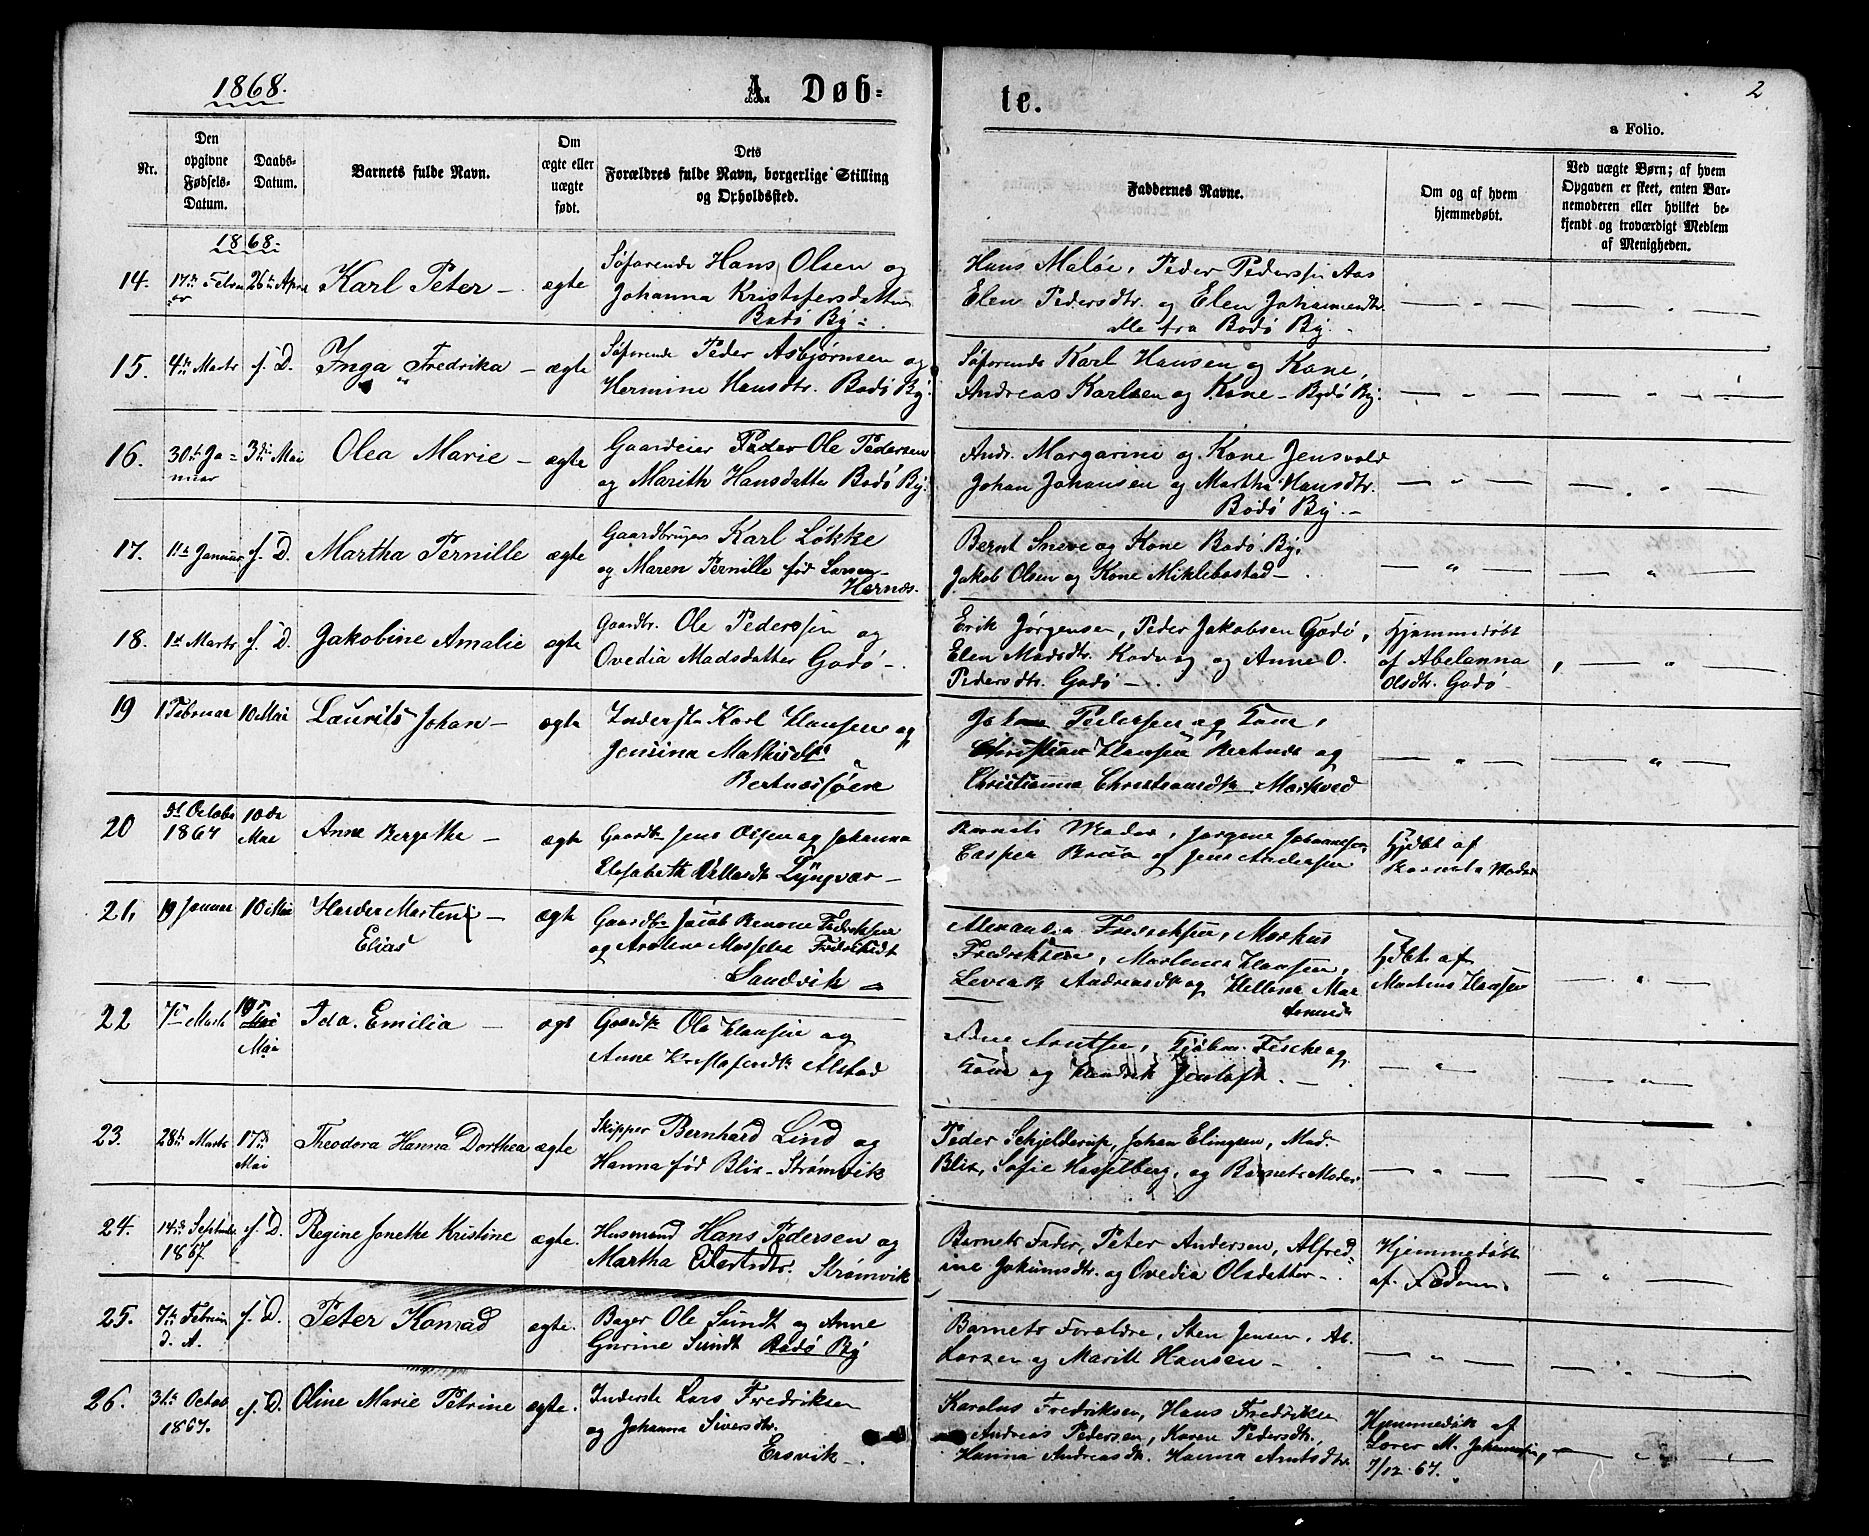 1868.
A. Døb=
te.
2
a Folio.
Nr.
Den opgivne Fødsels-Datum.
Daabs-Datum.
Barnets fulde Navn.
Om ægte eller uægte født.
Dets Forældres fulde Navn, borgerlige Stilling og Opholdssted.
Faddernes Navne.
Om og af hvem hjemmedøbt.
Ved uægte Børn; af hvem Opgaven er skeet, enten Barnemoderen eller hvilket bekjendt og troværdigt Medlem af Menigheden.
1868.
14. 17de Febru ar 26de April Karl Peter — ægte
Søfarende Hans Olsen og
Johanna Kristofersdatter
Bodø By
Hans Maløe, Peder Pederssen Aas
Elen Pedersdtr. og Elen Johannesdtr.
alle fra Bodø By.
15. 4de Marts s. D. Inga Fredrika — ægte
Søfarende Peder Asbjørnsen og
Hermine Hansdtr. Bodø By.
Søfarende Karl Hansen og Kone,
Andreas Karlsen og Kone — Bodø By.
16. 30te Ja=nuar 3die Mai Olea Marie — ægte
Gaardeier Peder Ole Pedersen
og Marith Hansdatter Bodø By.
Andr. Margarine og Kone Jensvold
Johan Johansen og Martha Hansdtr.
Bodø By. —
17. 11te Januar s. D. Martha Pernille ægte
Gaardbruger Karl Løkke
og Maren Pernille fød Larsen
Hernæs.
Bernt Sneve og Kone Bodø By,
Jakob Olsen og Kone Miklebostad —
18. 1ste Marts s. D. Jakobine Amalie ægte
Gaardbr. Ole Pederssen og
Ovedia Madsdatter Godø —
Erik Jørgensen, Peder Jakobsen Godø,
Elen Madsdtr. Kodvag og Anne O.
Pedersdtr. Godø —
Hjemmedøbt
af Abelanna
Olsdtr. Godø
19 1 Februar 10 Mai Laurits Johan — ægte
Inderste Karl Hansen og
Jensina Mathisdtr
Bertnessjøen
Johan Pedersen og Kone,
Christian Hansen Bertnes og
Christianna Christiansdtr Mørkved
20 5te Octobr 1867 10de Mai Anne Bergithe — ægte
Gaardbr Jens Olsen og Johanna
Elisabeth Lyngvær —
Barnets Moder, Jørgine Johannesen,
Casper og Jens Andersen
Hjdbt af
Barnets Moder
21, 19 Januar 10 Mai Marteni — Elias ægte
Gaardbr Jacob Benoni Fredriksen
og
Sandvik —
Fredriksen, Markus
Fredriksen, Hansen,
Andreasdtr og Hellena
Hjdbt af
Hansen
22 7de Marts 10de Mai Ida Emilia — ægt
Gaardbr Ole Hansen og
Anne Alstad
Arntsen,
Kone og Hendrik
23. 28de Marts 17de Mai Theodora Hanna Dorthea ægte
Skipper Bernhard Lind og
Hanna fød Blix — Strømvik
Peder Schjelderup, Johan Elingsen, Mad.
Blix, Sofie Hasselberg, og Barnets Moder.
24. 14de Septembr 1867 s. D. Regine Jonetha Kristine ægte.
Husmand Hans Pedersen og
Martha Eilertsdtr. Strømvik
Barnets Fader, Peter Andersen, Alfred=
ine Jokumsdtr. og Ovedia Olsdatter —
Hjemmedøbt
af Faderen.
25. 7de Februar d. A. s. D. Peter Konrad ægte.
Bager Ole Sundt og Anne
Gurine Sundt Bodø By
Barnets Forældre, Sten Jensen, Al.
Larsen og Maritt Hansen —
26. 31te Octob 1867. s. D. Oline Marie Petrine ægte.
Inderste Lars Fredriksen
og Johanna Siversdtr.
Ersvik —
Karolus Fredriksen, Hans Fredriksen
Andreas Pedersen, Karen Pedersdtr.
Hanna Andreasdtr. Hanna Arntsdtr
Hjemmedøbt af
Lærer M. Johannessen,
7/12 67.